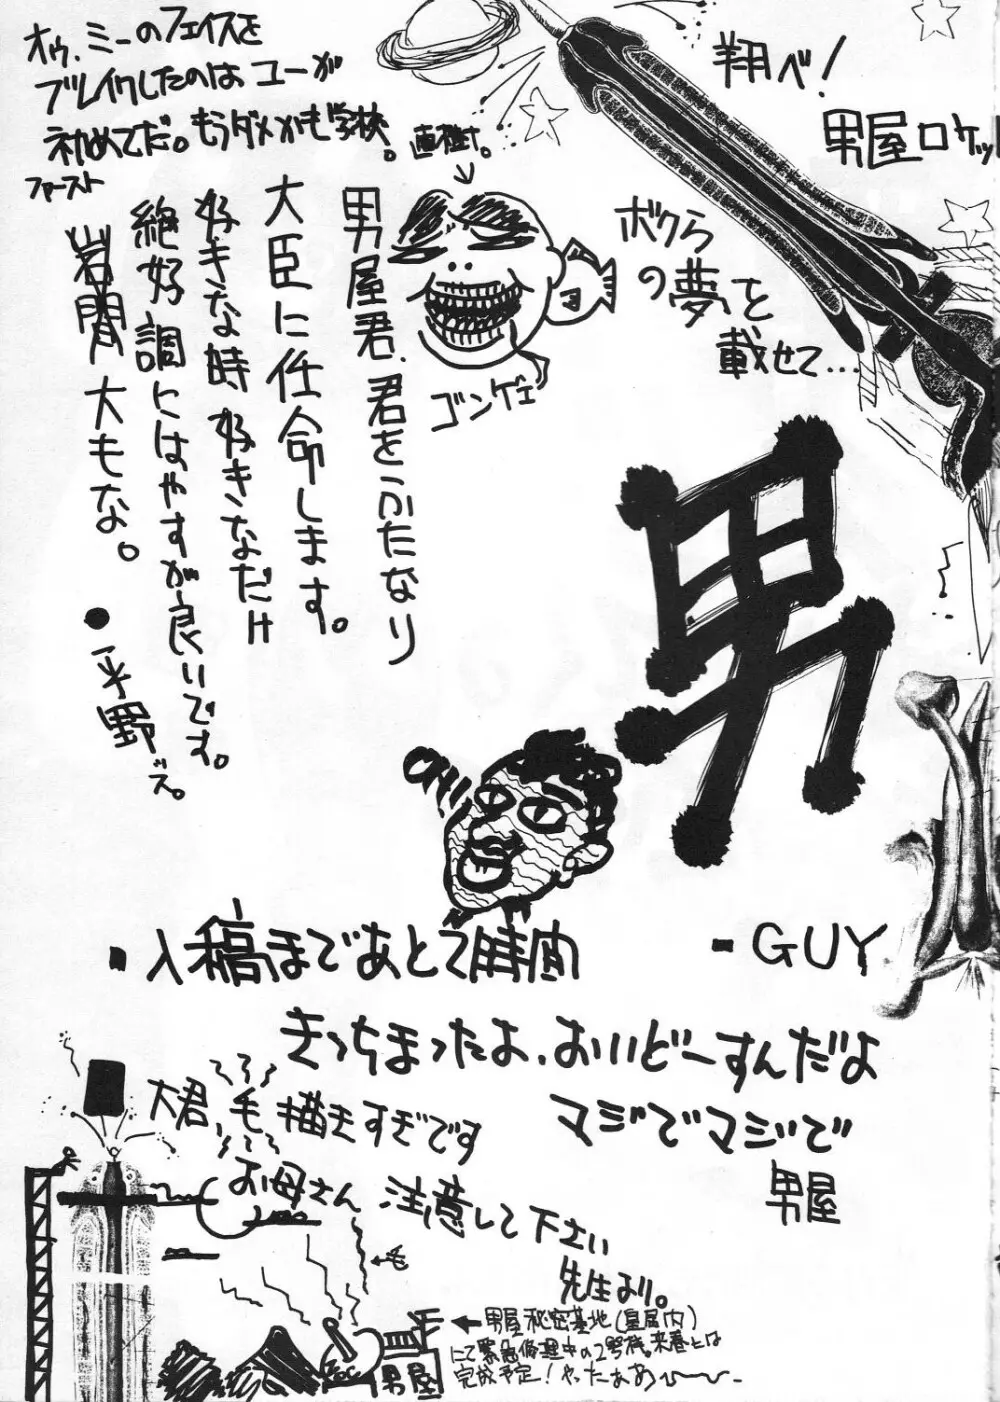 オゥ、ミーのフェイスを
ブレイクしたのはユーが
初めてだ。もうダメかも学校。直樹。
ファースト
翔べ!
男屋ロケット
ボクら
の夢を
載せて…
ゴンゲェ
男屋君、君をふたなり
大臣に任命します。
好きな時好きなだけ
絶好調にはやすが良いです。
岩間大もな。
●平野ズ。
男
CHU
・GUY
・入稿まであと2時間
きっちまったよ、おいどーすんだよ
マジでマジで
男屋
大君、毛描きすぎです
お母さん注意して下さい
先生より。
←毛
←男屋秘密基地(皇居内)
にて緊急修理中の2号機。来春には
完成予定!やったぁぁ
男屋